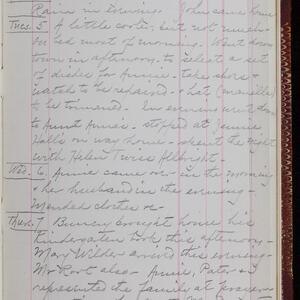 Rain in evening. John came home
Tues. 5 A little cooler, but not much.
in bed most of morning. Went down
town in afternoon, to select a set
of dishes for Annie - take shoes &
watch to be repaired - & hat (manilla)
to be trimmed. In evening went down
to Aunt Anna's - stopped at Jennie
Halls on way home - spent the night
with Helen Twiss Albright.
Wed. 6. Annie came on - in the morning
& her husband in the evening -
Mended clothes &c -
Thurs. 7 brought home his
Kindergarten book, this afternoon -
Mary Wilder arrived this evening -
Mr Root also - Annie, Pater & I
represented the family at prayer-